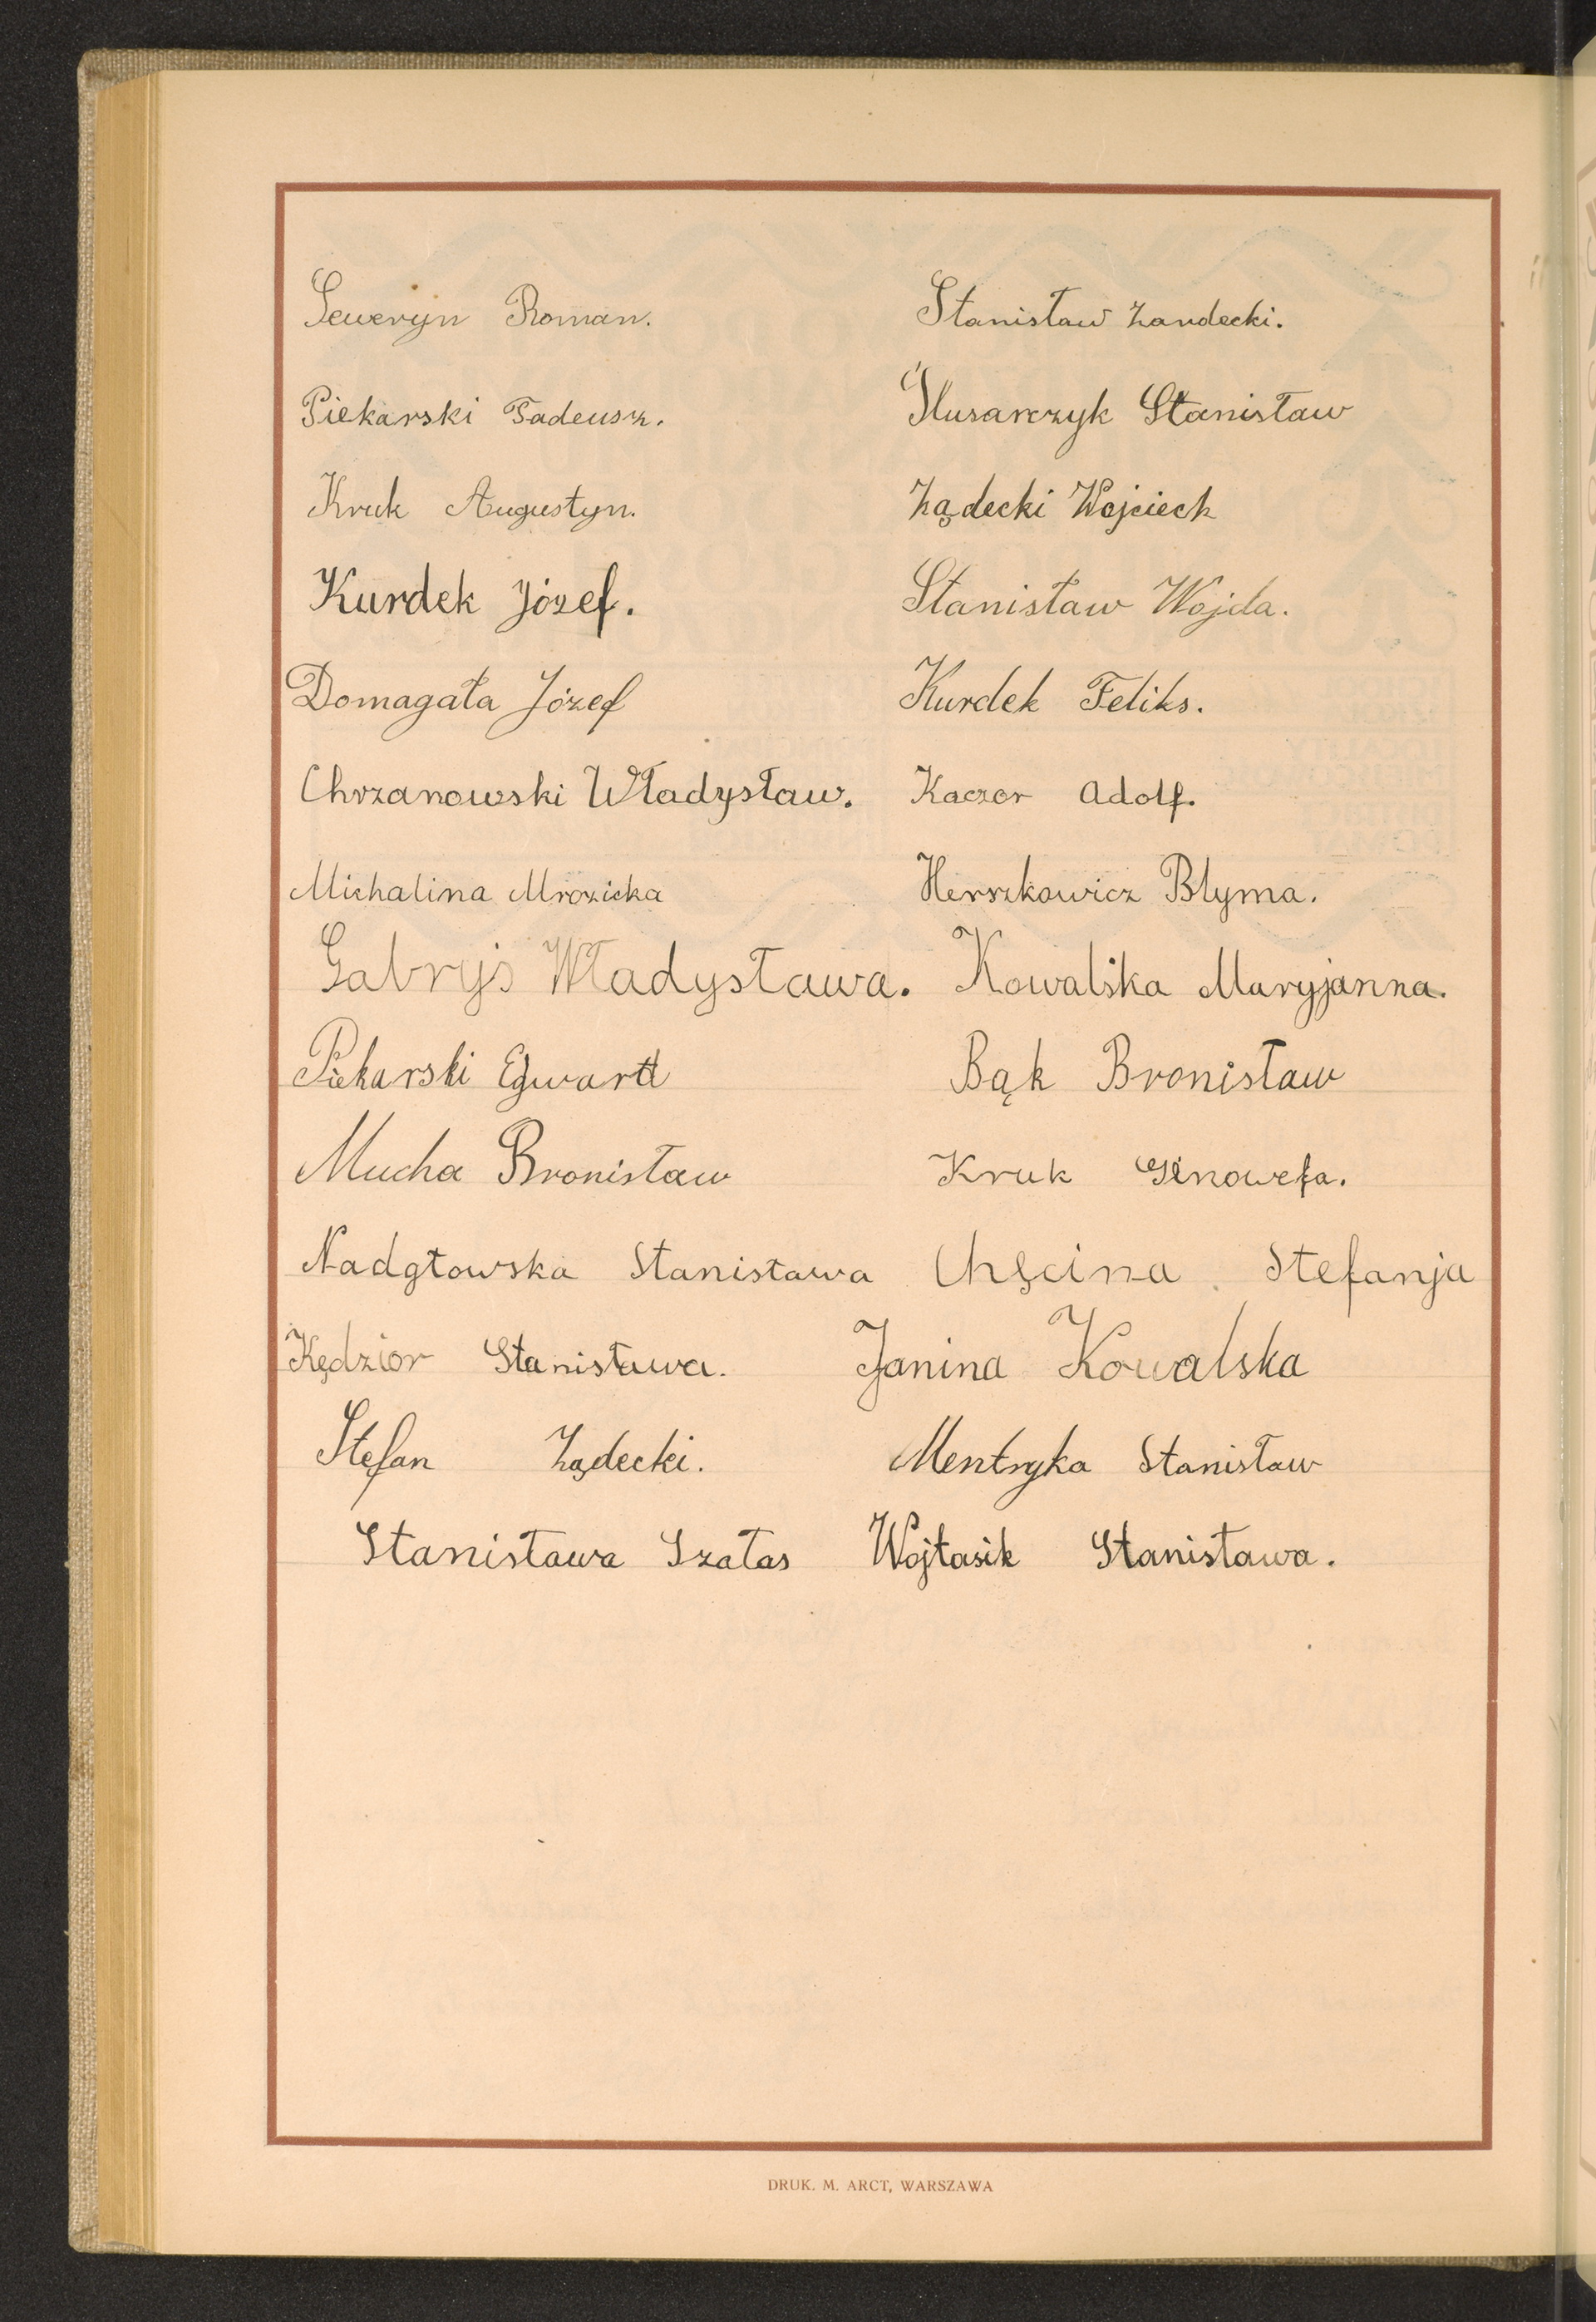 Seweryn Roman.
Stanisław Zandecki.
Piekarski Tadeusz.
Ślusarczyk Stanisław
Kruk Augustyn.
Ządecki Wojciech
Kurdek Józef.
Stanisław Wojda.
Domagała Józef
Kurdek Feliks.
Chrzanowski Władysław.
Kaczor Adolf.
Michalina Mrozicka
Herszkowicz Blyma.
Gabryś Władysława.
Kowalska Maryjanna.
Piekarski
Bąk Bronisław
Mucha Bronisław
Kruk Genowefa.
Nadgłowska Stanisława
Chęcina Stefanja
Kędzior Stanisława.
Janina Kowalska
Stefan Ządecki.
Mentryka Stanisław
Stanisława Szałas
Wojtasik Stanisława.
DRUK. M. ARCT, WARSZAWA